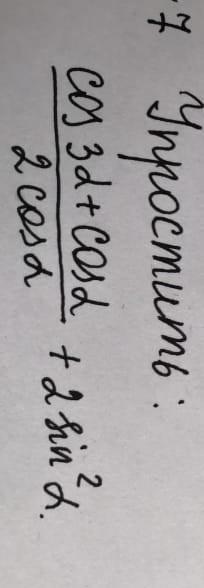 .7 Упростить:
cos 3α + cosα
2cosα + 2 sin²α.